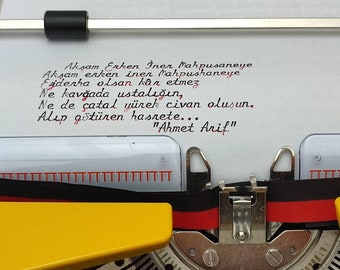 Akşam Erken İner Mahpusaneye
Akşam erken iner Mahpushaneye
Ejderha olsan kâr etmez
Ne kavgada ustalığın,
Ne de çatal yürek civan oluşun.
Alıp götüren hasrete...
"Ahmet Arif"